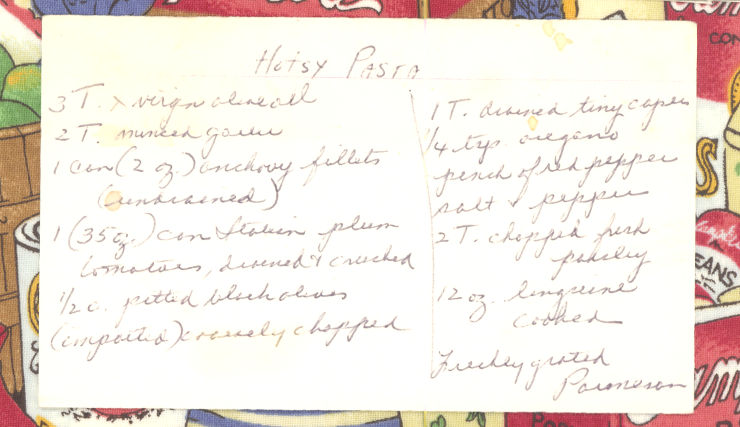 Hotsy Pasta
3 T. x virgin olive oil
2 T. minced garlic
1 can (2 oz.) anchovy fillets
(undrained)
1 (35 oz.) can Italian plum
tomatoes, drained & crushed
1/2 c. pitted black olives
(imported) coarsely chopped
1 T. drained tiny capers
1/4 tsp. oregano
pinch of red pepper
salt & pepper
2 T. chopped fresh
parsley
12 oz. linguine
cooked
Freshly grated
Parmesan
CON
EANS